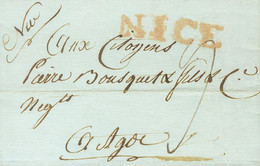 NICE
Aux Citoyens
Pierre Bousquet & fils & C.
Neg.ts
A Agde